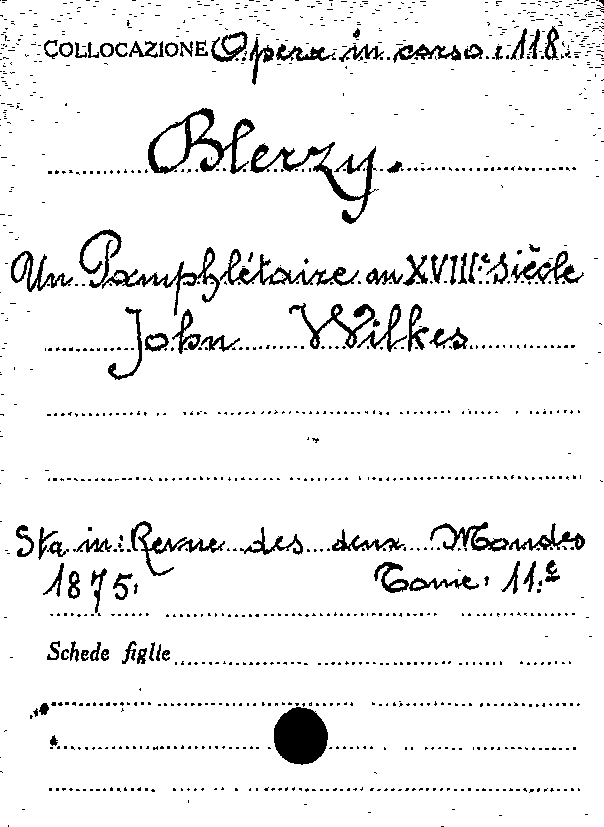 COLLOCAZIONE Opera in corso : 118
Blerzy.
Un Pamphlétaire au XVIII.e Siècle
John Wilkes
Sta in: Revue des deux Mondes
1875. Tome: 11.e
Schede figlie